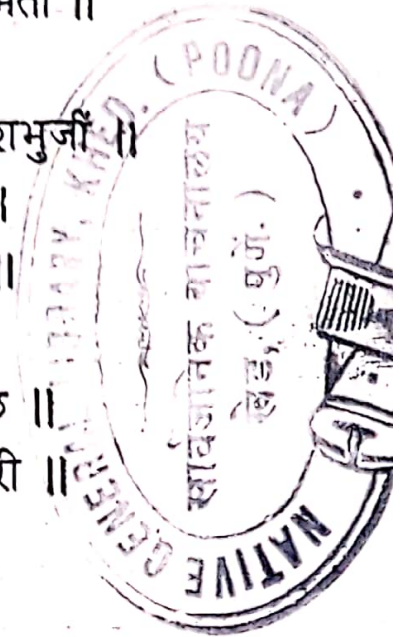 मता ॥
शभुजीं ॥
।
॥
॥
री ॥
NATIVE GENERAL LIBRARY, KHED. (POONA)
सार्वजनिक वाचनालय
खेड, (पुणें.)